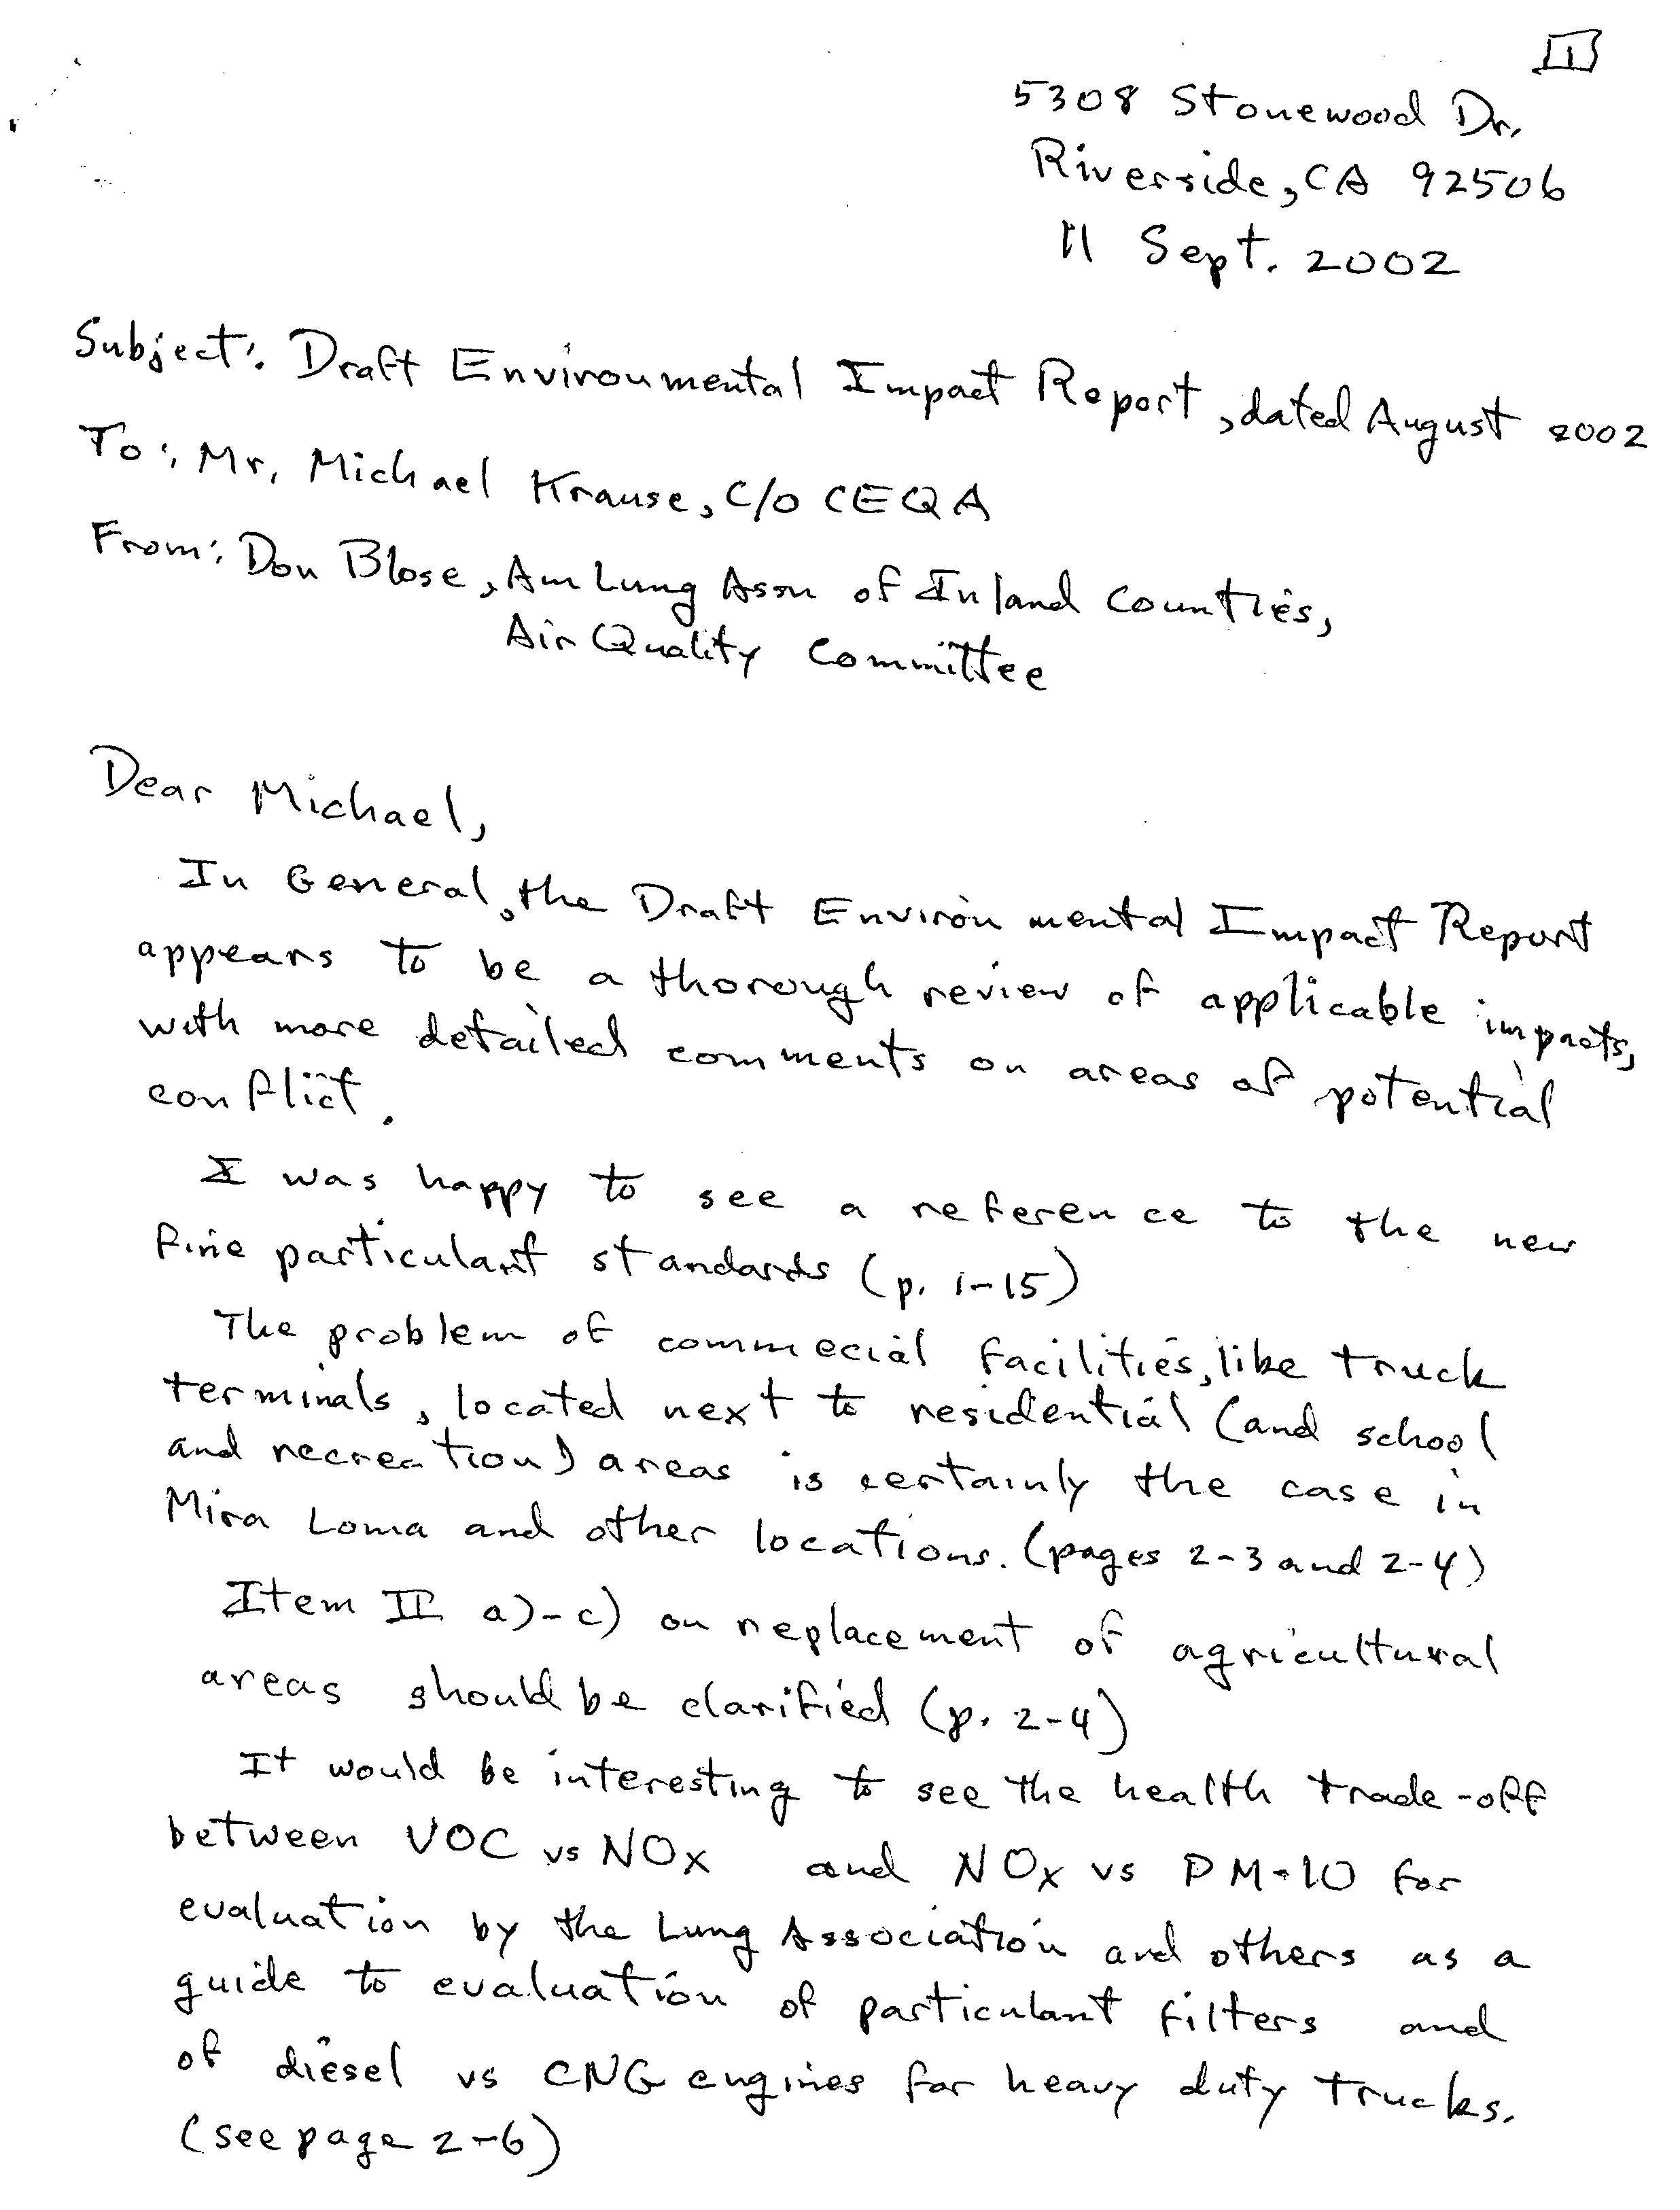 1
5308 Stonewood Dr.
Riverside, CA 92506
11 Sept. 2002
Subject: Draft Environmental Impact Report, dated August 2002
To: Mr. Michael Krause, c/o CEQA
From: Don Blose, Am Lung Assn of Inland Counties,
Air Quality Committee
Dear Michael,
In General, the Draft Environmental Impact Report
appears to be a thorough review of applicable impacts,
with more detailed comments on areas of potential
conflict.
I was happy to see a reference to the new
fine particulant standards (p. 1-15)
The problem of commecial facilities, like truck
terminals, located next to residential (and school
and recreation) areas is certainly the case in
Mira Loma and other locations. (pages 2-3 and 2-4)
Item II a)-c) on replacement of agricultural
areas should be clarified (p. 2-4)
It would be interesting to see the health trade-off
between VOC vs NOx and NOx vs PM-10 for
evaluation by the Lung Association and others as a
guide to evaluation of particulant filters and
of diesel vs CNG engines for heavy duty trucks.
(see page 2-6)